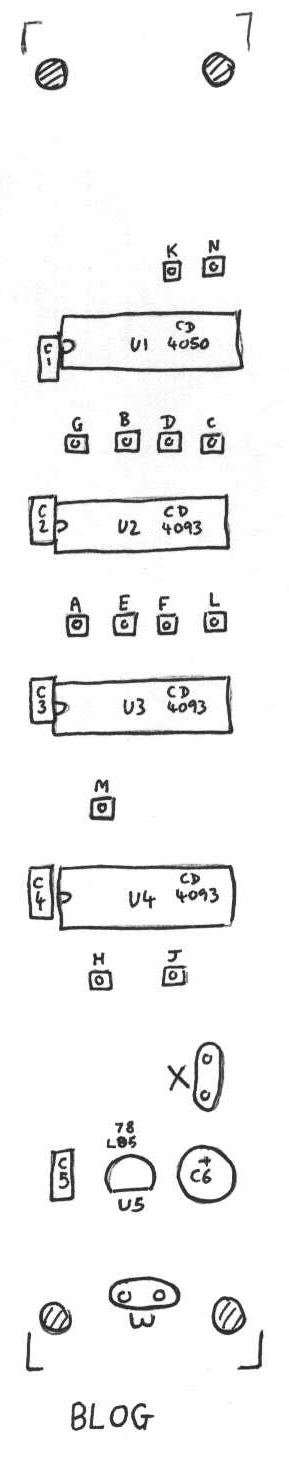 K N
C1 U1 CD 4050
G B D C
C2 U2 CD 4093
A E F L
C3 U3 CD 4093
M
C4 U4 CD 4093
H J
X
78
L05
C5 C6 +
U5
W
BLOG